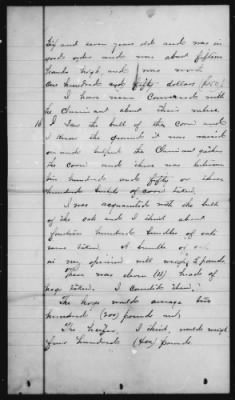 six and seven years old and was in
good order and was about fifteen
hands high, and was worth
one hundred and fifty dollars ($150).
I have never conversed with
the Claimant about their value.
16 I saw the bulk of the corn and
I know the ground it was raised
on and helped the Claimant gather
the corn and there was between
two hundred and fifty or three
hundred bushels of corn taken.
I was acquainted with the bulk
of the oats and I think about
fourteen hundred bundles of oats
were taken. A bundle of oats
in my opinion will weigh 2 pounds
There was eleven (11) head of
hogs taken. I counted them.
The hogs would average two
hundred (200) pounds net.
The heifer, I think, would weigh
four hundred (400) pounds